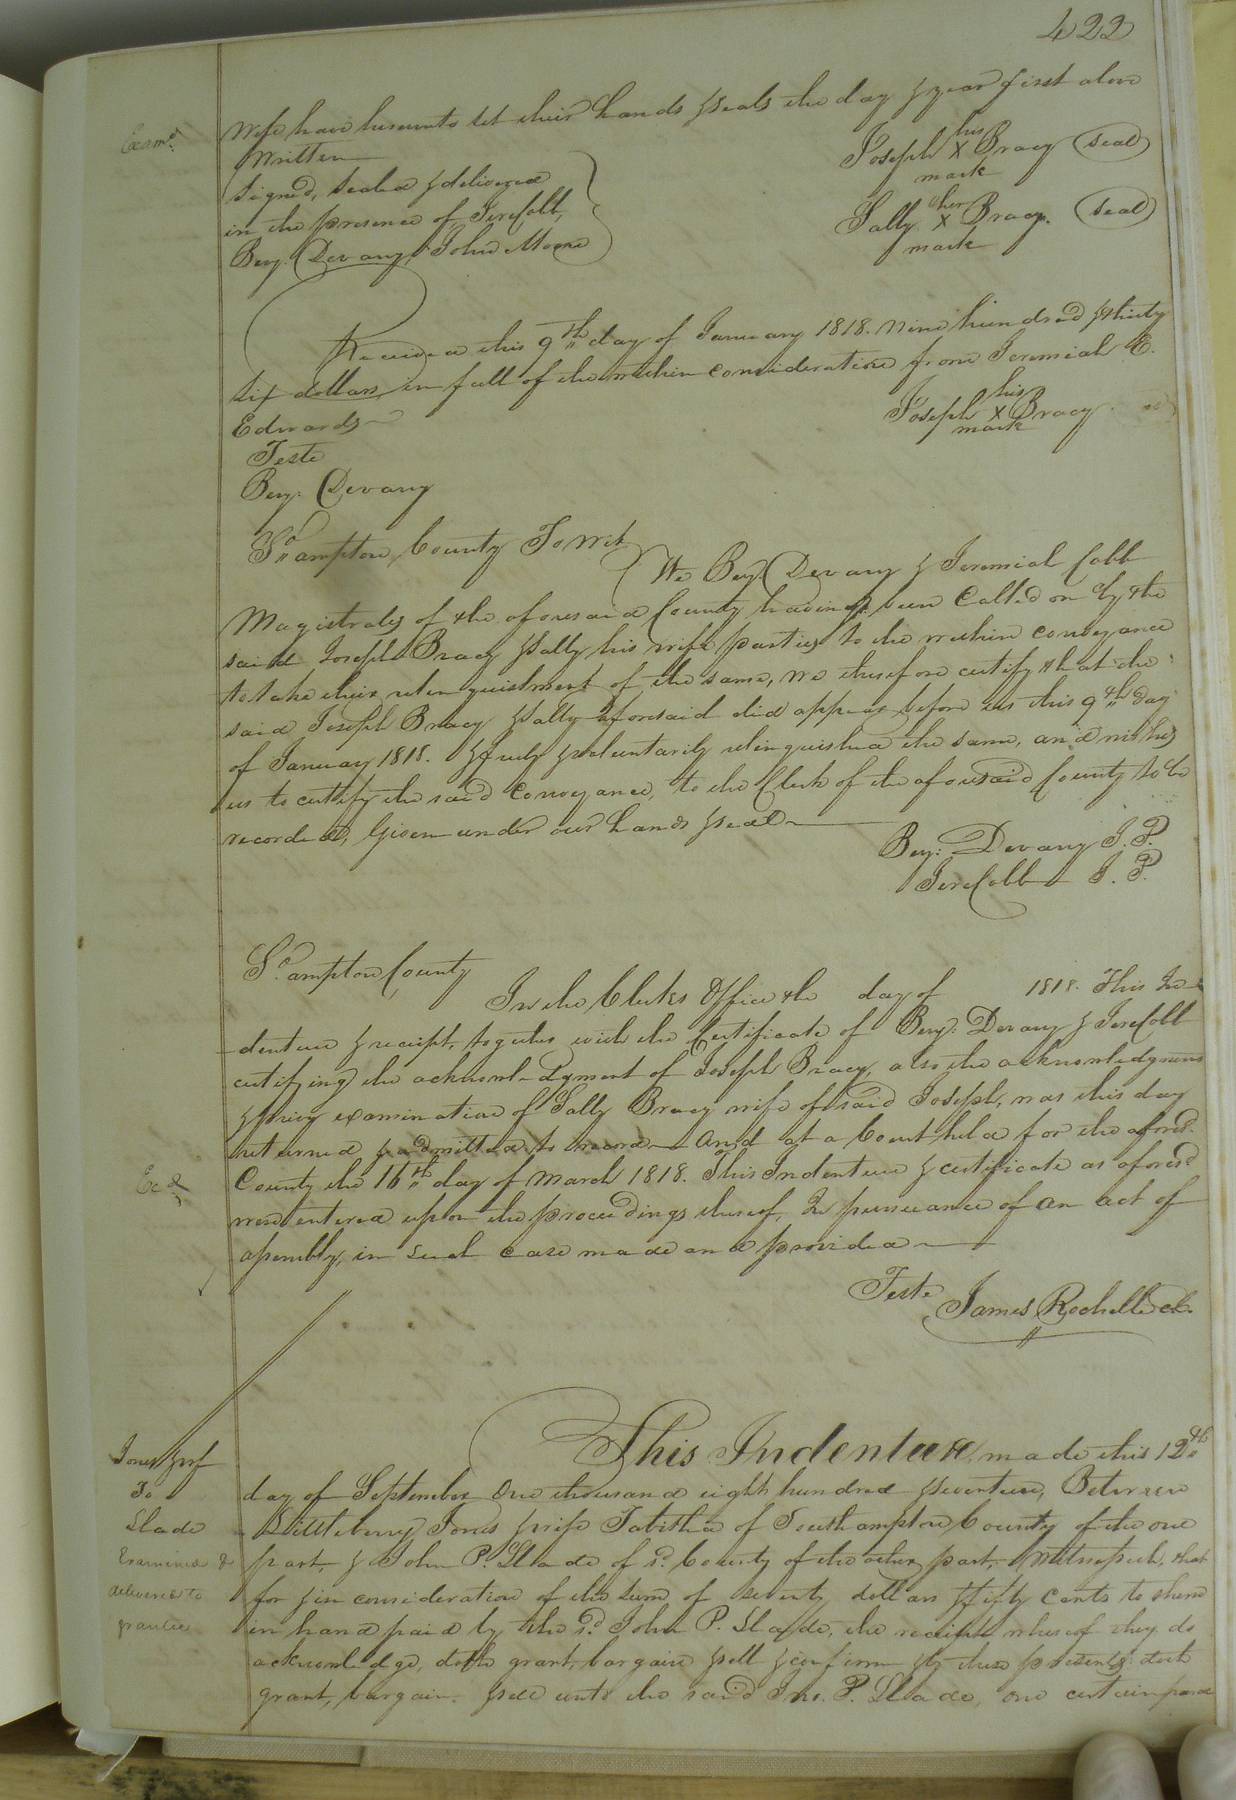 422
Exam.d
Wife, have hereunto set their hands & seals the day & year first above
Written
Signed, Sealed & delivered
in the presence of Jere Cobb,
Benj. Devany, John Moore
his
Joseph X Bracy (seal)
mark
her
Sally X Bracy. (seal)
mark
Received this 9th day of January 1818. Nine hundred & thirty
six dollars, in full of the within consideration from Jeremiah E.
Edwards
his
Joseph X Bracy
mark
Teste
Benj. Devany
So.ampton County To Wit
We Benj. Devany & Jeremiah Cobb
Magistrates of the aforesaid County, having been Called on by the
said Joseph Bracy & Sally his wife parties to the within conveyance
to take their relinquishment of the same, we therefore certify that the
said Joseph Bracy & Sally aforesaid did appear before us this 9th day
of January 1818. & freely & voluntarily relinquished the same, and wishes
us to certify the said Conveyance, to the Clerk of the aforesaid County to be
recorded, Given under our hands & seal
Benj: Devany J. P.
Jere Cobb J. P.
So.ampton County
In the Clerks Office the day of 1818. This In-
denture & receipt, together with the Certificate of Benj. Devany & Jere Cobb
certifying the acknowledgment of Joseph Bracy, also the acknowledgment
& privy examination of Sally Bracy wife of said Joseph, was this day
returned & admitted to record And at a Court held for the afores.d
Ex.d
County the 16th day of March 1818. This Indenture & certificate as afores.d
were entered upon the proceedings thereof, In pursuance of an act of
assembly, in such case made and provided
Teste James Rochelle Ck.
This Indenture, made this 12th
Jones & wf
To
Slade
Examined &
delivered to
grantee
day of September One thousand eight hundred & seventeen, Between
Littleberry Jones & wife Tabitha of Southampton County of the one
part, & John P. Slade of sd. County of the other part, Witnesseth, that
for & in consideration of the sum of seventy dollars & fifty Cents to them
in hand paid by the sd. John P. Slade, the receipt whereof they do
acknowledge, doth grant, bargain & sell & confirm & by these presents doth
grant, bargain & sell unto the said Jno. P. Slade, one certain parcel